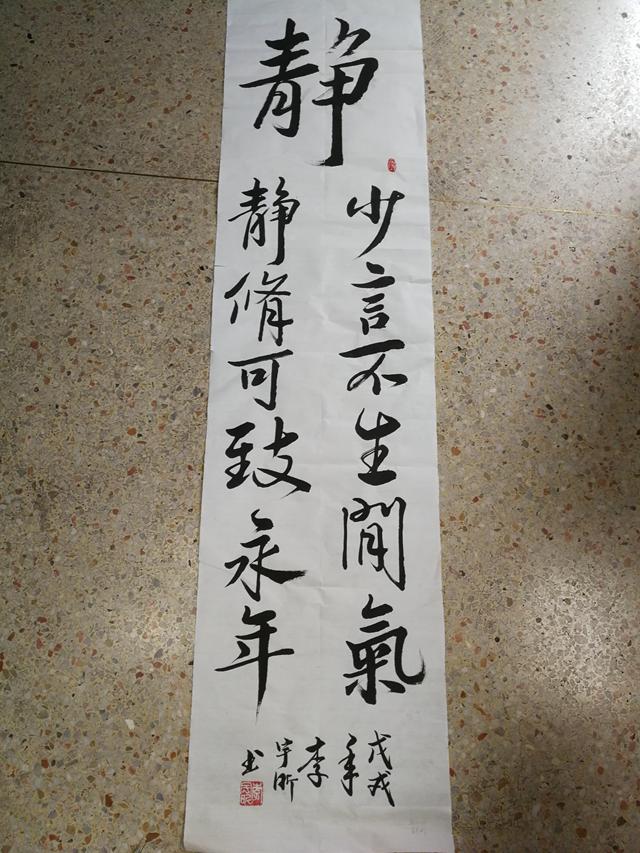 静
少言不生閒氣
静脩可致永年
戊戌
年
李
宇昕
书